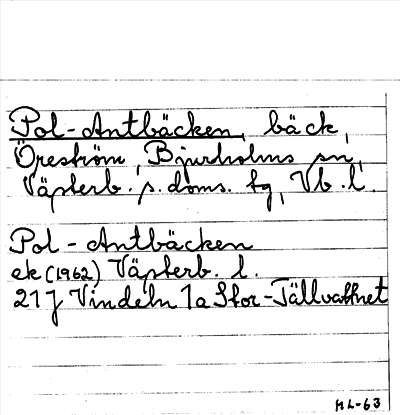 Pol-Antbäcken, bäck,
Öreström, Bjurholms sn,
Västerb. s. doms. tg, Vb. l.
Pol-Antbäcken
ek (1962) Västerb. l.
21 J Vindeln 1a Stor-Tällvattnet
HL-63